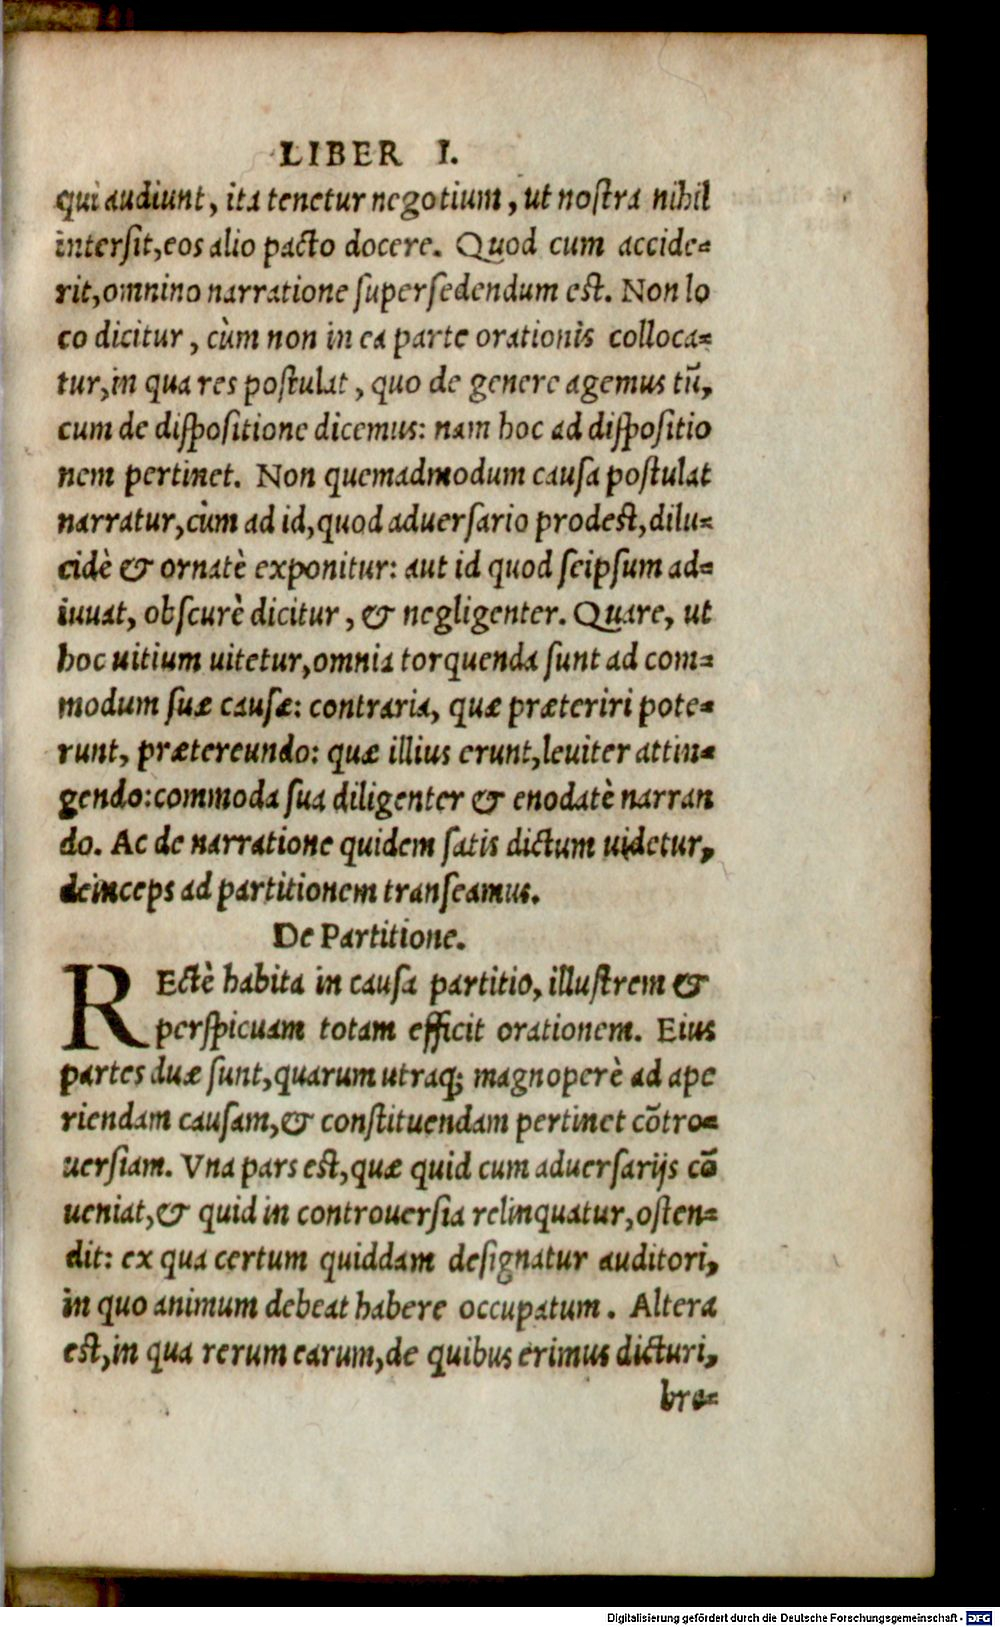 LIBER I.
qui audiunt, ita tenetur negotium, ut nostra nihil
intersit, eos alio pacto docere. Quod cum accide-
rit, omnino narratione supersedendum est. Non lo
co dicitur, cùm non in ea parte orationis colloca-
tur, in qua res postulat, quo de genere agemus tū,
cum de dispositione dicemus: nam hoc ad dispositio
nem pertinet. Non quemadmodum causa postulat
narratur, cùm ad id, quod aduersario prodest, dilu-
cidè & ornatè exponitur: aut id quod seipsum ad-
iuuat, obscurè dicitur, & negligenter. Quare, ut
hoc uitium uitetur, omnia torquenda sunt ad com-
modum suæ causæ: contraria, quæ præteriri pote-
runt, prætereundo: quæ illius erunt, leuiter attin-
gendo: commoda sua diligenter & enodatè narran
do. Ac de narratione quidem satis dictum uidetur,
deinceps ad partitionem transeamus.
De Partitione.
REctè habita in causa partitio, illustrem &
perspicuam totam efficit orationem. Eius
partes duæ sunt, quarum utraq; magnoperè ad ape
riendam causam, & constituendam pertinet cōtro-
uersiam. Vna pars est, quæ quid cum aduersarijs cō
ueniat, & quid in controuersia relinquatur, osten-
dit: ex qua certum quiddam designatur auditori,
in quo animum debeat habere occupatum. Altera
est, in qua rerum earum, de quibus erimus dicturi,
bre-
Digitalisierung gefördert durch die Deutsche Forschungsgemeinschaft - DFG